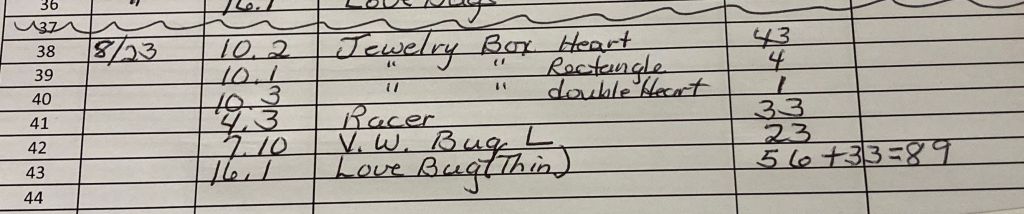 36 " 16.1 Love Bugs
37
38 8/23 10.2 Jewelry Box Heart 43
39 10.1 " " Rectangle 4
40 10.3 " " double Heart 1
41 4.3 Racer 33
42 7.10 V.W. Bug L 23
43 16.1 Love Bug (Thin) 56+33=89
44